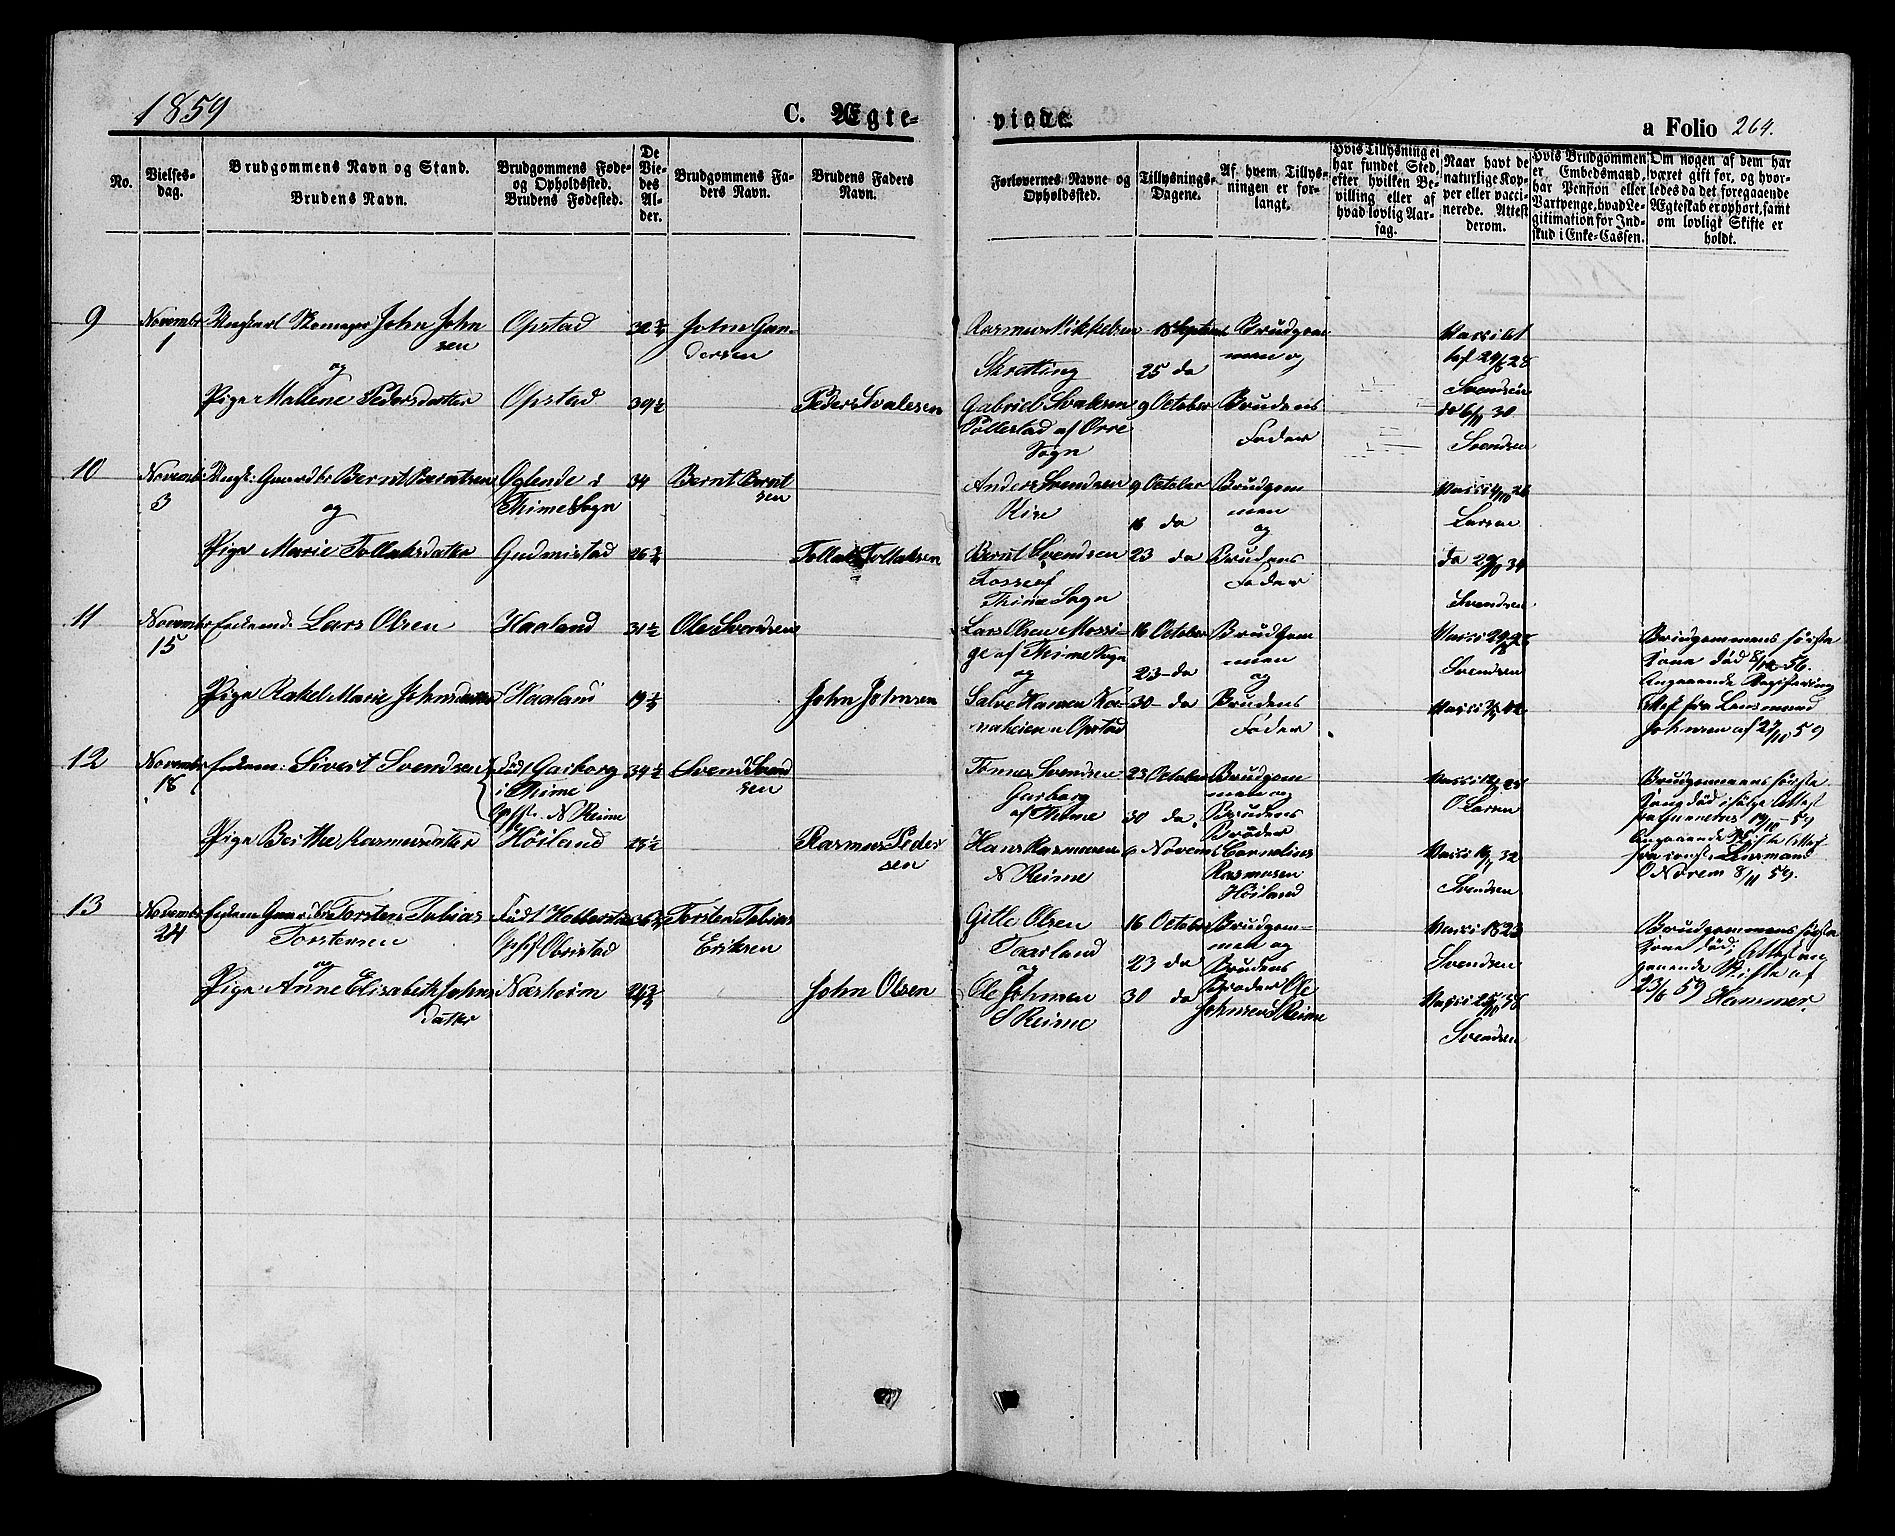 1859
C. Ægte-
viede
a Folio 264.
No.
Vielses-
dag.
Brudgommens Navn og Stand.
Brudens Navn.
Brudgommens Føde-
og Opholdssted.
Brudens Fødested.
De
Vie-
des
Al-
der.
Brudgommens Fa-
ders Navn.
Brudens Faders
Navn.
Forlovernes Navne og
Opholdssted.
Tillysnings-
Dagene.
Af hvem Tillys-
ningen er for-
langt.
Hvis Tillysning ei
har fundet Sted,
efter hvilken Be-
villing eller af
hvad lovlig Aar-
sag.
Naar havt de
naturlige Kop-
per eller vacci-
nerede. Attest
derom.
Hvis Brudgommen
er Embedsmand,
har Pension eller
Vartpenge, hvad Le-
gitimation for Ind-
skud i Enke-Cassen.
Om nogen af dem har
været gift før, og hvor-
ledes da det foregaaende
Ægteskab er ophørt, samt
om lovligt Skifte er
holdt.
9
Novembr
1
Ungkarl Skomager John John
sen
og
Pige Mallene Pedersdatter
Opstad
Opstad
John Gun-
dersen
Peder Svalesen
Rasmus Mikkelsen
Skretting
Gabriel Svalesen
Pollestad af Orre
Sogn
18 September
25 do
9 October
Brudgom
men og
Brudens
Fader
Svendsen
Svendsen
10
Novembr
3
Ungk: Gaardbr Bernt Berntsen
og
Pige Marie Tollaksdatter
Oglende i
Thime Sogn
Gudmestad
34
Bernt Bernt
sen
Tollak Tollaksen
Anders Svendsen
Rise
Bernt Svendsen
Fosse af
Thime Sogn
9 October
16 do
23 do
Brudgom
men
og
Brudens
Fader
Larsen
Svendsen
11
Novembr
15
Enkemd. Lars Olsen
Pige Rakel Marie Johnsdatter
Haaland
Haaland
31½
Ole Svendsen
John Johnsen
Lars Olsen Mossi-
ge af Thime Sogn
og
16 October
23 do
30 do
Brudgom
men
og
Brudens
Fader
Svendsen
Brudgommens første
Kone død 8/12 56.
Angaaende Registrering
Att. fra Lensmand
Johnsen af 27/10 59
12
Novembr
18
Enkem: Sivert Svendsen
Pige Berthe Rasmusdatter
Født Garborg
i Thime
Oph. N Reime
Høiland
34½
25½
Svend Svend
sen
Rasmus Peder
sen
Tønnes Svendsen
Garborg
af Thime
Hans Rasmussen
N Reime
23 October
30 do
6 Novem
Brudgom
men og
Brudens
Broder
Cornelius
Rasmusen
Høiland
O Larsen
Svendsen
13
Novembr
24
Enkem Gaardbr Torsten Tobias
Torstensen
og
Pige Anne Elisabeth Johns
datter
Obrestad
Nærheim
Torsten Tobias
Eriksen
John Olsen
Gitle Olsen
og
Ole Johnsen
S Reime
16 October
23 do
30 do
Brudgom-
men og
Brudens
Broder Ole
Johnsen S Reime
Svendsen
Svendsen
Brudgommens første
Kone død; Attest an
gaaende Skifte af
23/6 59 Hammer.